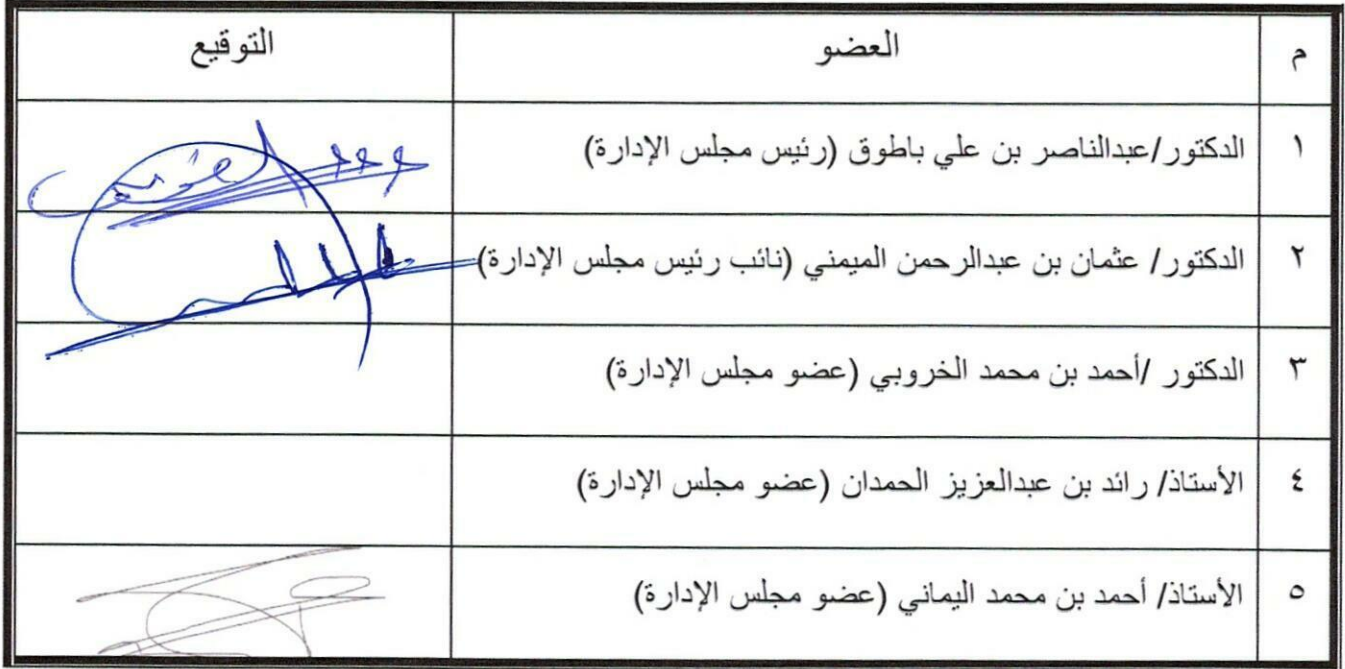 م العضو التوقيع
١ الدكتور/عبدالناصر بن علي باطوق (رئيس مجلس الإدارة)
٢ الدكتور/ عثمان بن عبدالرحمن الميمني (نائب رئيس مجلس الإدارة)
٣ الدكتور /أحمد بن محمد الخروبي (عضو مجلس الإدارة)
٤ الأستاذ/ رائد بن عبدالعزيز الحمدان (عضو مجلس الإدارة)
٥ الأستاذ/ أحمد بن محمد اليماني (عضو مجلس الإدارة)